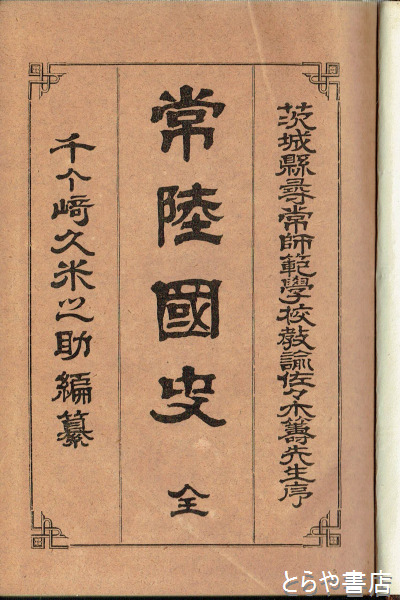 茨城縣尋常師範學校教諭佐々木籌先生序
常陸國史 全
千ケ﨑久米之助編纂
とらや書店